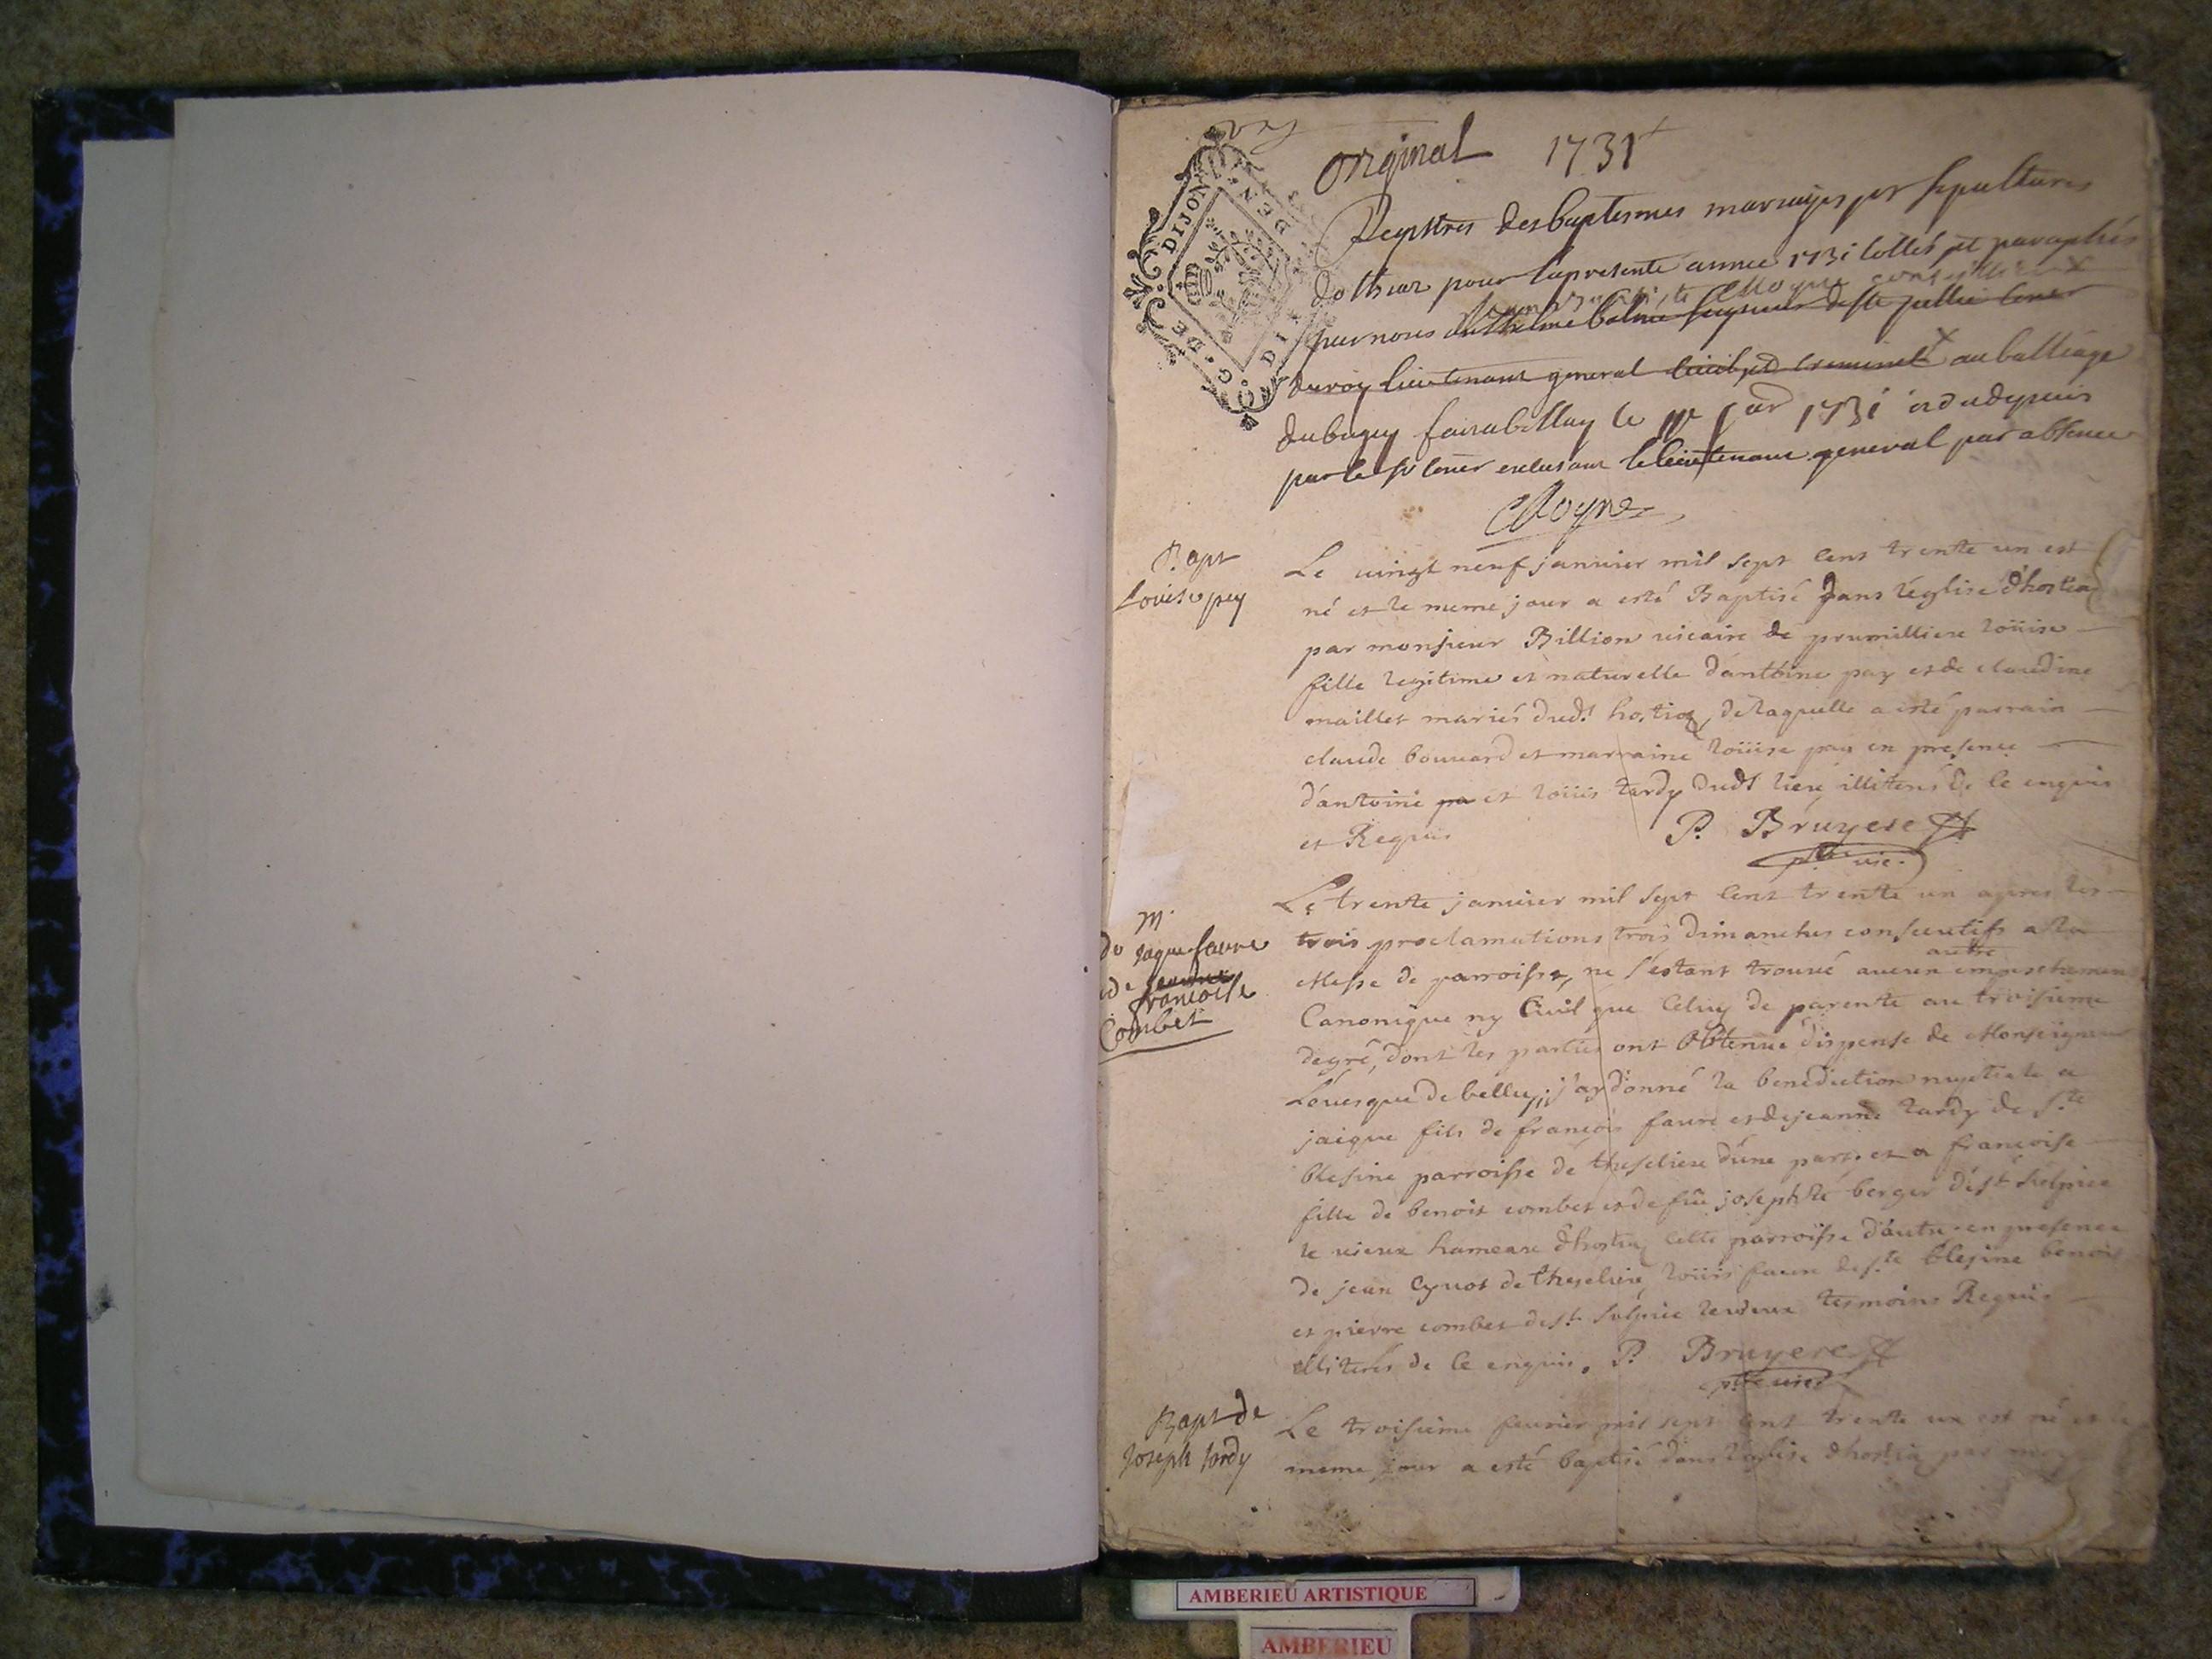 orginal 1731
G. DE DIJON
DEN
Registres des baptesmes mariages et sepultures
dothiaz pour lapresente année 1731 cottés et paraphés
par nous anthelme balme seigneur de ste jullie conser
du roy lieutenant general civil et criminel au balliage
du bugey fait a bellay le 1731 et du depuis
par le sr coner exerseant le lieutenant general par absence
Moyne
Bapt
Loüise pey
Le vingt neuf janvier mil sept cent trente un est
né et le meme jour a esté Baptisé dans l'église d'hostiaz
par monsieur Billion vicaire de prumilliere loüise
fille legitime et naturelle d'anthoine pay et de claudine
maillet mariés dudt hostiaz, de laquelle a esté parrain
claude bouvard et marraine loüise pay en presence
d'antoine pa et loüis tardy dudt lieu, illiterés de ce enquis
et Requis
P. Bruyere
ptre vic.
M.
de Jaque favre
et de jeanne
francoise
Combet
Le trente janvier mil sept cent trente un apres les
trois proclamations trois dimanches consecutifs a la
Messe de parroisse, ne s'estant trouvé aucun autre empeschement
Canonique ny Civil que Celuy de parenté au troisieme
degré, dont les parties ont obtenue dispense de Monseigneur
L'evesque de belley, j'ay donné la benediction nuptiale a
jaique fils de françois favre et de jeanne tardy de ste
blesine parroisse de theseliere d'une part, et a francoise
fille de benoit combet et de füe josephte berger de st sulpice
le vieux hameau d'hostiaz cette parroisse d'autre en presence
de jean Cyvot de theseliere, loüis favre de ste blesine benoit
et pierre combet de st sulpice le vieux tesmoins Requis
illiterés de ce enquis. P. Bruyere
ptre vic.
Bapt de
Joseph tardy
Le troisieme fevrier mil sept cent trente un est né et le
meme jour a esté baptisé dans l'eglise d'hostiaz par moy
AMBERIEU ARTISTIQUE
AMBERIEU